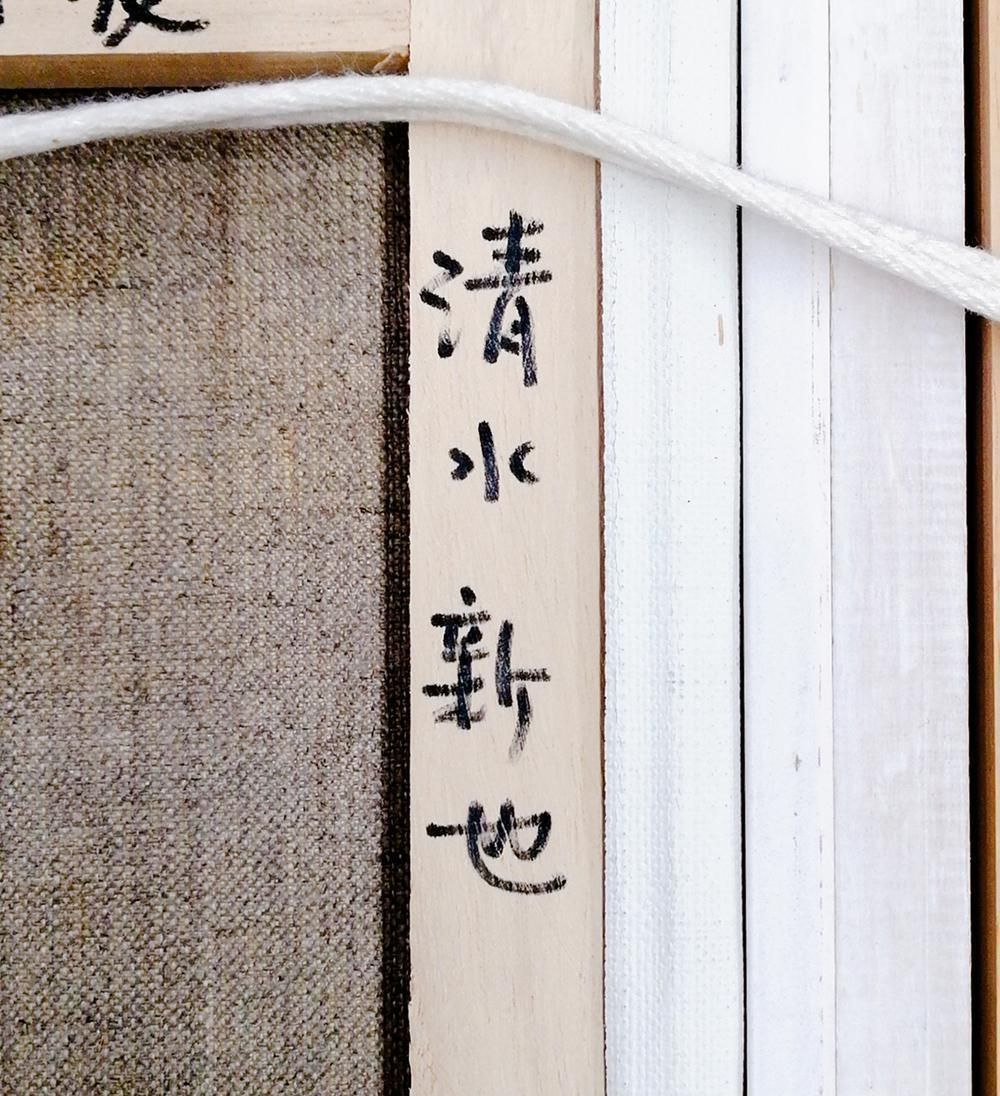 清水新也